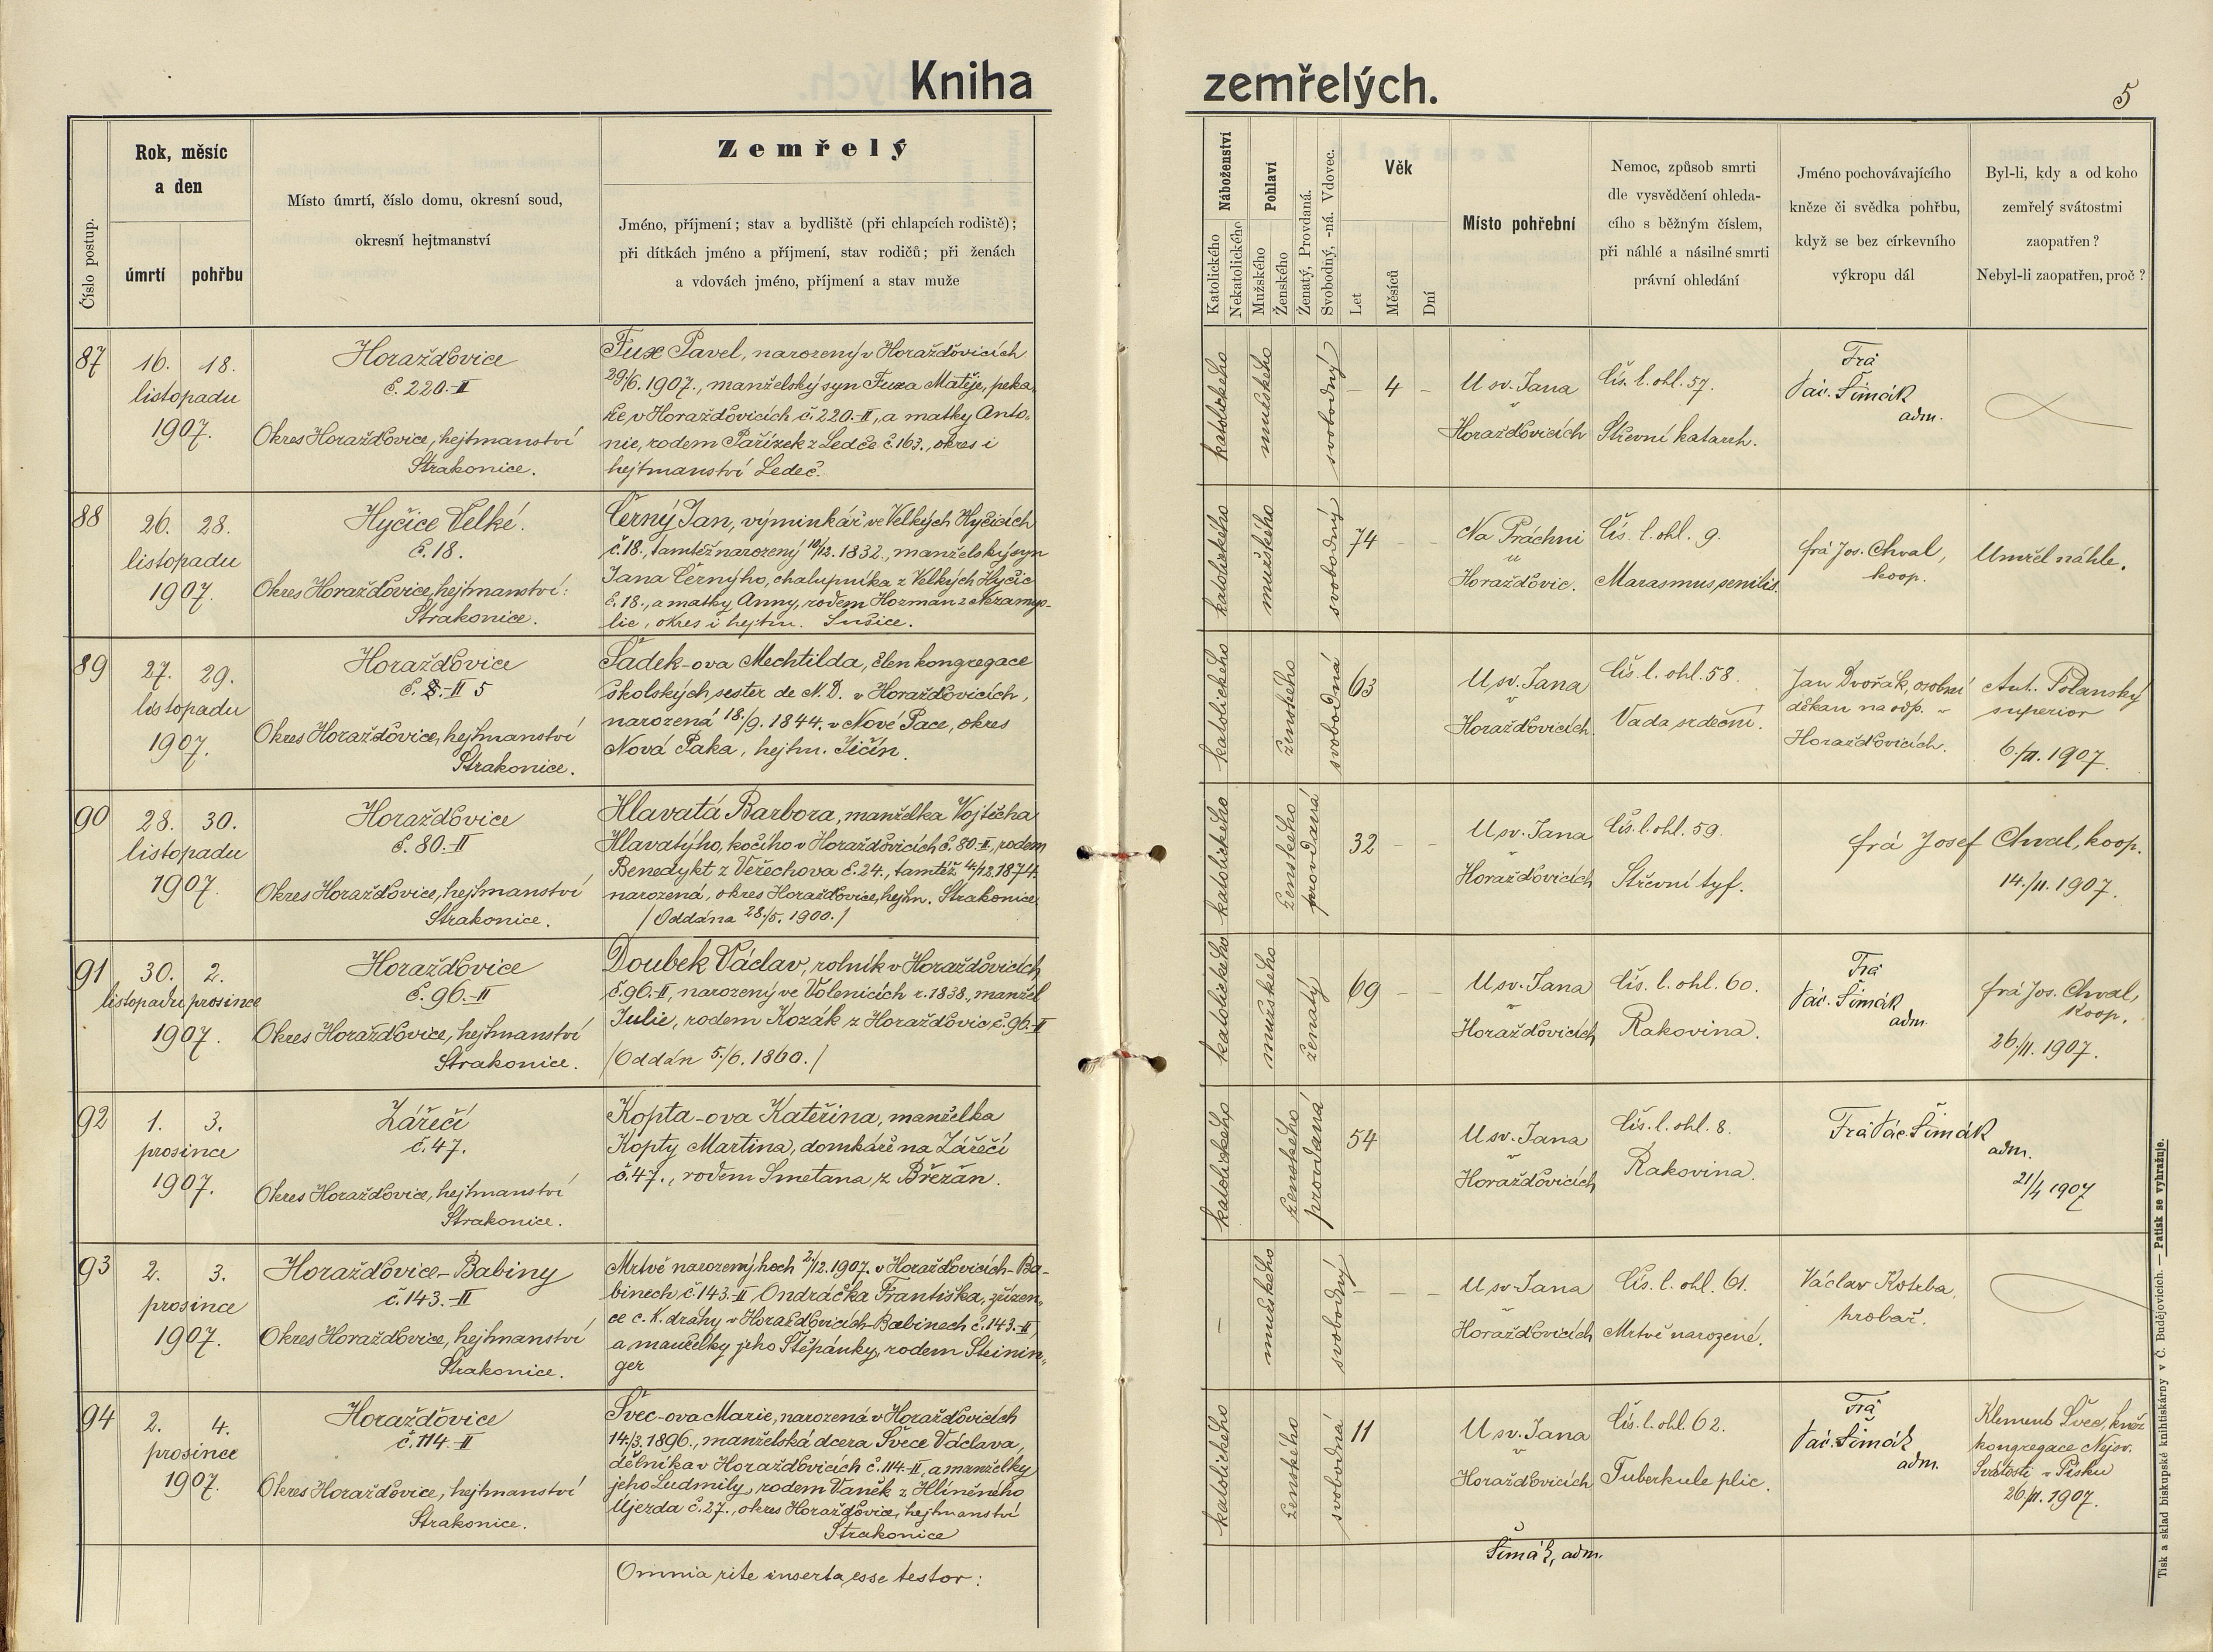 Kniha zemřelých.
5
Číslo postup.
Rok, měsíc
a den
úmrtí
pohřbu
Místo úmrtí, číslo domu, okresní soud,
okresní hejtmanství
Zemřelý
Jméno, příjmení; stav a bydliště (při chlapcích rodiště);
při dítkách jméno a příjmení, stav rodičů; při ženách
a vdovách jméno, příjmení a stav muže
Náboženství
Katolického
Nekatolického
Pohlaví
Mužského
Ženského
Ženatý, Provdaná.
Svobodný, -ná. Vdovec.
Věk
Let
Měsíců
Dní
Místo pohřební
Nemoc, způsob smrti
dle vysvědčení ohleda-
cího s běžným číslem,
při náhlé a násilné smrti
právní ohledání
Jméno pochovávajícího
kněze či svědka pohřbu,
když se bez církevního
výkropu dál
Byl-li, kdy a od koho
zemřelý svátostmi
zaopatřen?
Nebyl-li zaopatřen, proč?
87
16. 18.
listopadu
1907.
Horažďovice
č. 220.-II
Okres Horažďovice, hejtmanství
Strakonice.
Fux Pavel, narozený v Horažďovicích
29./6. 1907., manželský syn Fuxa Matěje, peka-
ře, v Horažďovicích č. 220.-II, a matky Anto-
nie, rodem Pařízek z Ledče č. 163., okres i
hejtmanství Ledeč.
katolického
mužského
svobodný
– 4 –
U sv. Jana
v
Horažďovicích
Čís. l. ohl. 57.
Střevní katarrh.
Frá
Vác. Šimák
adm.
88
26. 28.
listopadu
1907.
Hyčice Velké.
č. 18.
Okres Horažďovice, hejtmanství:
Strakonice.
Černý Jan, výminkář ve Velkých Hyčicích
č. 18., tamtéž narozený 10/12. 1832., manželský syn
Jana Černýho, chalupníka z Velkých Hyčic
č. 18., a matky Anny, rodem Hozman z Nezamys-
lic, okres i hejtm. Sušice.
katolického
mužského
svobodný
74 – –
Na Práchni
u
Horažďovic.
Čís. l. ohl. 9.
Marasmus senilis.
frá Jos. Chval,
koop.
Umřel náhle.
89
27. 29.
listopadu
1907.
Horažďovice
č. 8.-II 5
Okres Horažďovice, hejtmanství
Strakonice.
Šádek-ova Mechtilda, člen kongregace
školských sester de N. D. v Horažďovicích,
narozená 18./9. 1844. v Nové Pace, okres
Nová Paka, hejtm. Jičín.
katolického
ženského
svobodná
63
U sv. Jana
v
Horažďovicích.
Čís. l. ohl. 58.
Vada srdeční.
Jan Dvořák, osobní
děkan na odp. v
Horažďovicích.
Ant. Polanský
superior
6./11. 1907.
90
28. 30.
listopadu
1907.
Horažďovice
č. 80.-II
Okres Horažďovice, hejtmanství
Strakonice.
Hlavatá Barbora, manželka Vojtěcha
Hlavatýho, kočího v Horažďovicích č. 80.-II, rodem
Benedykt z Veřechova č. 24., tamtéž 4./12. 1874.
narozená, okres Horažďovice, hejtm. Strakonice
/Oddána 28./5. 1900./
katolického
ženského
provdaná
32 – –
U sv. Jana
v
Horažďovicích
Čís. l. ohl. 59.
Střevní tyf.
frá Josef Chval, koop.
14./11. 1907.
91
30. 2.
listopadu prosince
1907.
Horažďovice
č. 96.-II
Okres Horažďovice, hejtmanství
Strakonice.
Doubek Václav, rolník v Horažďovicích
č. 96.-II, narozený ve Volenicích r. 1838., manžel
Julie, rodem Kozák z Horažďovic, č. 96.-II
/Oddán 5./6. 1860./
katolického
mužského
ženatý
69 – –
U sv. Jana
v
Horažďovicích
Čís. l. ohl. 60.
Rakovina.
Frá
Vác. Šimák
adm.
frá Jos. Chval,
koop.
26./11. 1907.
92
1. 3.
prosince
1907.
Zářečí
č. 47.
Okres Horažďovice, hejtmanství
Strakonice.
Kopta-ova Kateřina, manželka
Kopty Martina, domkáře na Zářečí
č. 47., rodem Smetana z Břežan.
katolického
ženského
provdaná
54
U sv. Jana
v
Horažďovicích
Čís. l. ohl. 8.
Rakovina.
Frá Vác. Šimák
adm.
21/4 1907
93
2. 3.
prosince
1907.
Horažďovice-Babiny
č. 143.-II
Okres Horažďovice, hejtmanství
Strakonice.
Mrtvě narozený hoch 2./12. 1907. v Horažďovicích-Ba-
binech č. 143.-II Ondráčka Františka, zřízen-
ce c. k. dráhy v Horažďovicích-Babinech č. 143.-II,
a manželky jeho Štěpánky, rodem Steinin-
ger
–
mužského
svobodný
– – –
U sv. Jana
v
Horažďovicích
Čís. l. ohl. 61.
Mrtvě narozené.
Václav Kotrba,
hrobař.
94
2. 4.
prosince
1907.
Horažďovice
č. 114.-II
Okres Horažďovice, hejtmanství
Strakonice.
Švec-ova Marie, narozená v Horažďovicích
14./3. 1896., manželská dcera Švece Václava,
dělníka v Horažďovicích č. 114.-II, a manželky
jeho Ludmily, rodem Vaněk z Hliněného
Újezda č. 27., okres Horažďovice, hejtmanství
Strakonice
katolického
ženského
svobodná
11
U sv. Jana
v
Horažďovicích
Čís. l. ohl. 62.
Tuberkule plic.
Frá
Vác. Šimák
adm.
Klement Švec, kněz
kongregace Nejsv.
Svátosti v Písku
26/11. 1907.
Omnia rite inserta esse testor:
Šimák, adm.
Tisk a sklad biskupské knihtiskárny v Č. Budějovicích. — Patisk se vyhražuje.